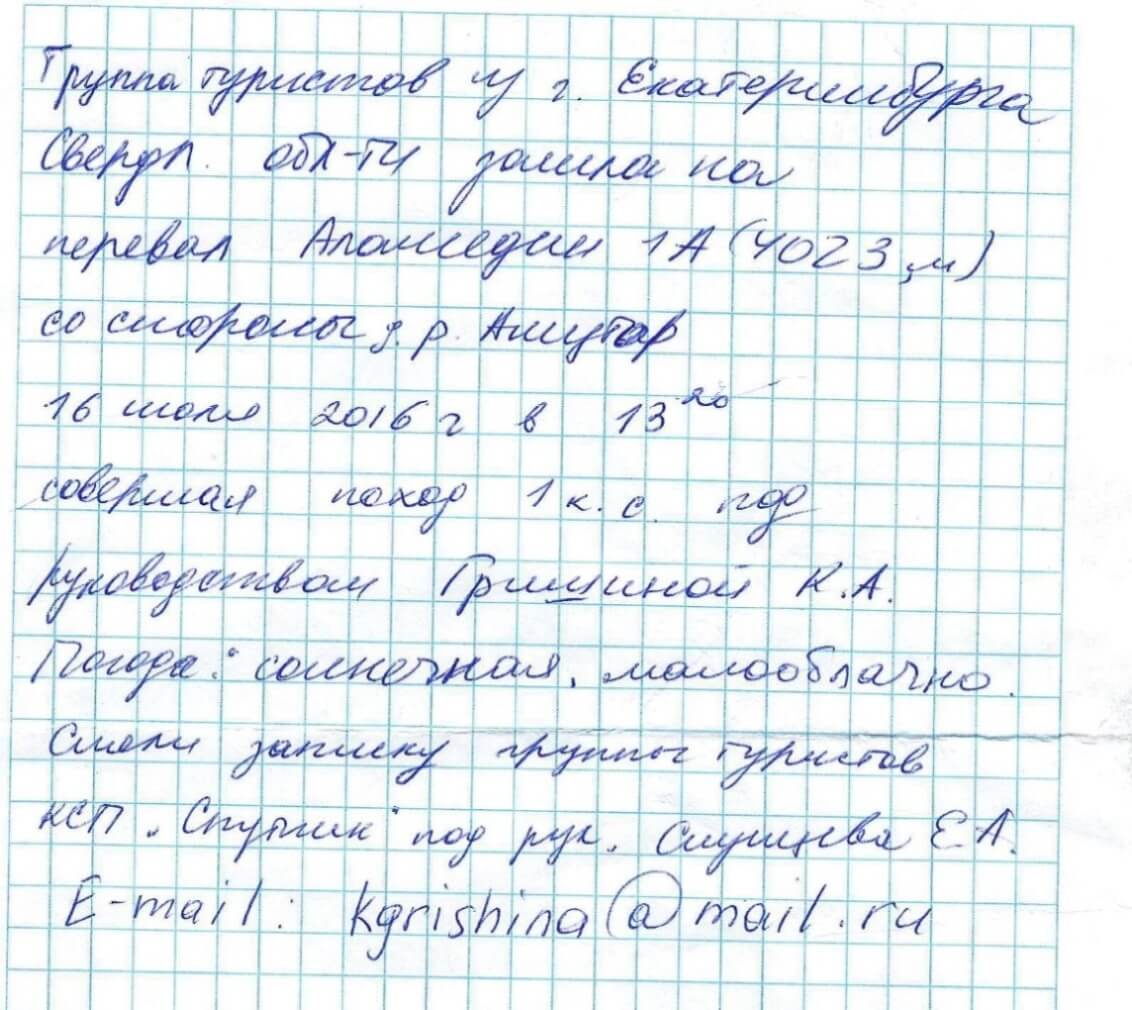 Группа туристов из г. Екатеринбурга
Свердл. обл-ти зашла на
перевал Аламедин 1А (4023 м)
со стороны д.р. Ашутор
16 июля 2016 г в 13 20
совершая поход 1 к.с. под
руководством Гришиной К.А.
Погода: солнечная, малооблачно.
Сняли записку группы туристов
КСП "Спутник" под рук. Слунцева Е.А.
E-mail: kgrishina@mail.ru